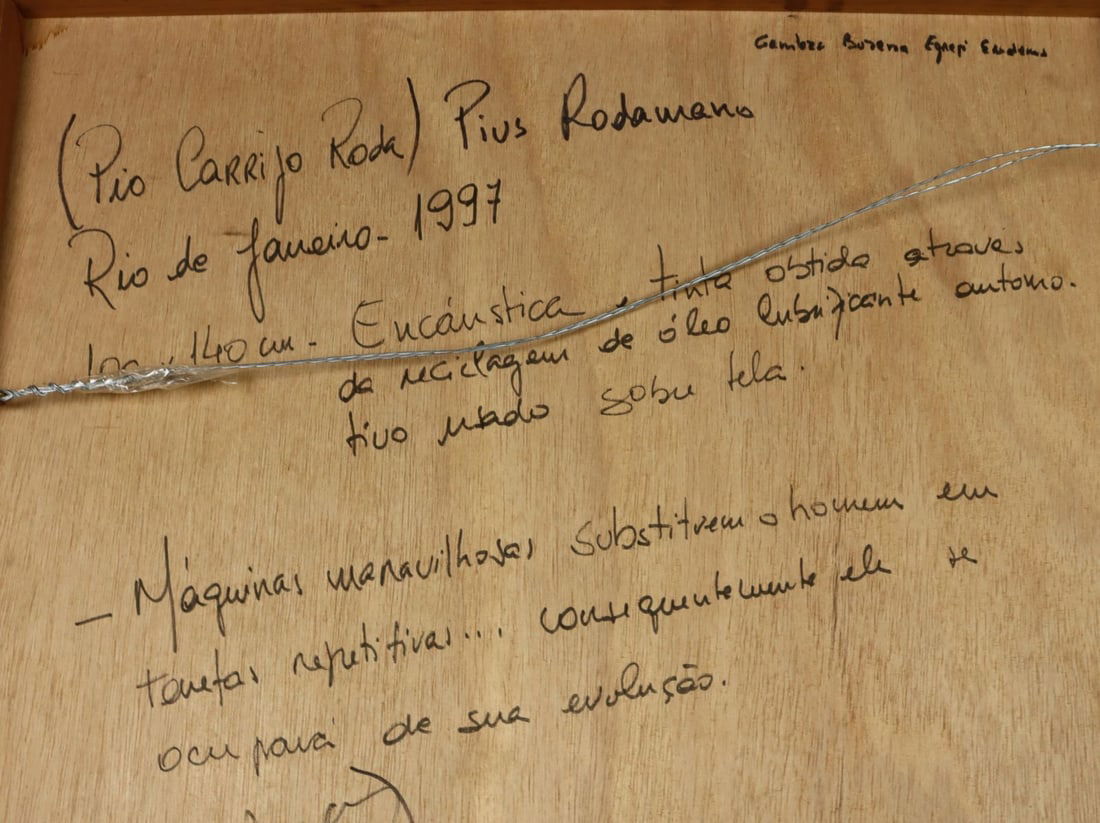 (Pio Carrijo Roda) Pius Rodamano
Rio de Janeiro - 1997
140 cm - Encáustica, tinta obtida através
da reciclagem de óleo lubrificante automo-
tivo usado sobre tela.
- Máquinas maravilhosas substituem o homem em
tarefas repetitivas... consequentemente ele se
ocupará de sua evolução.